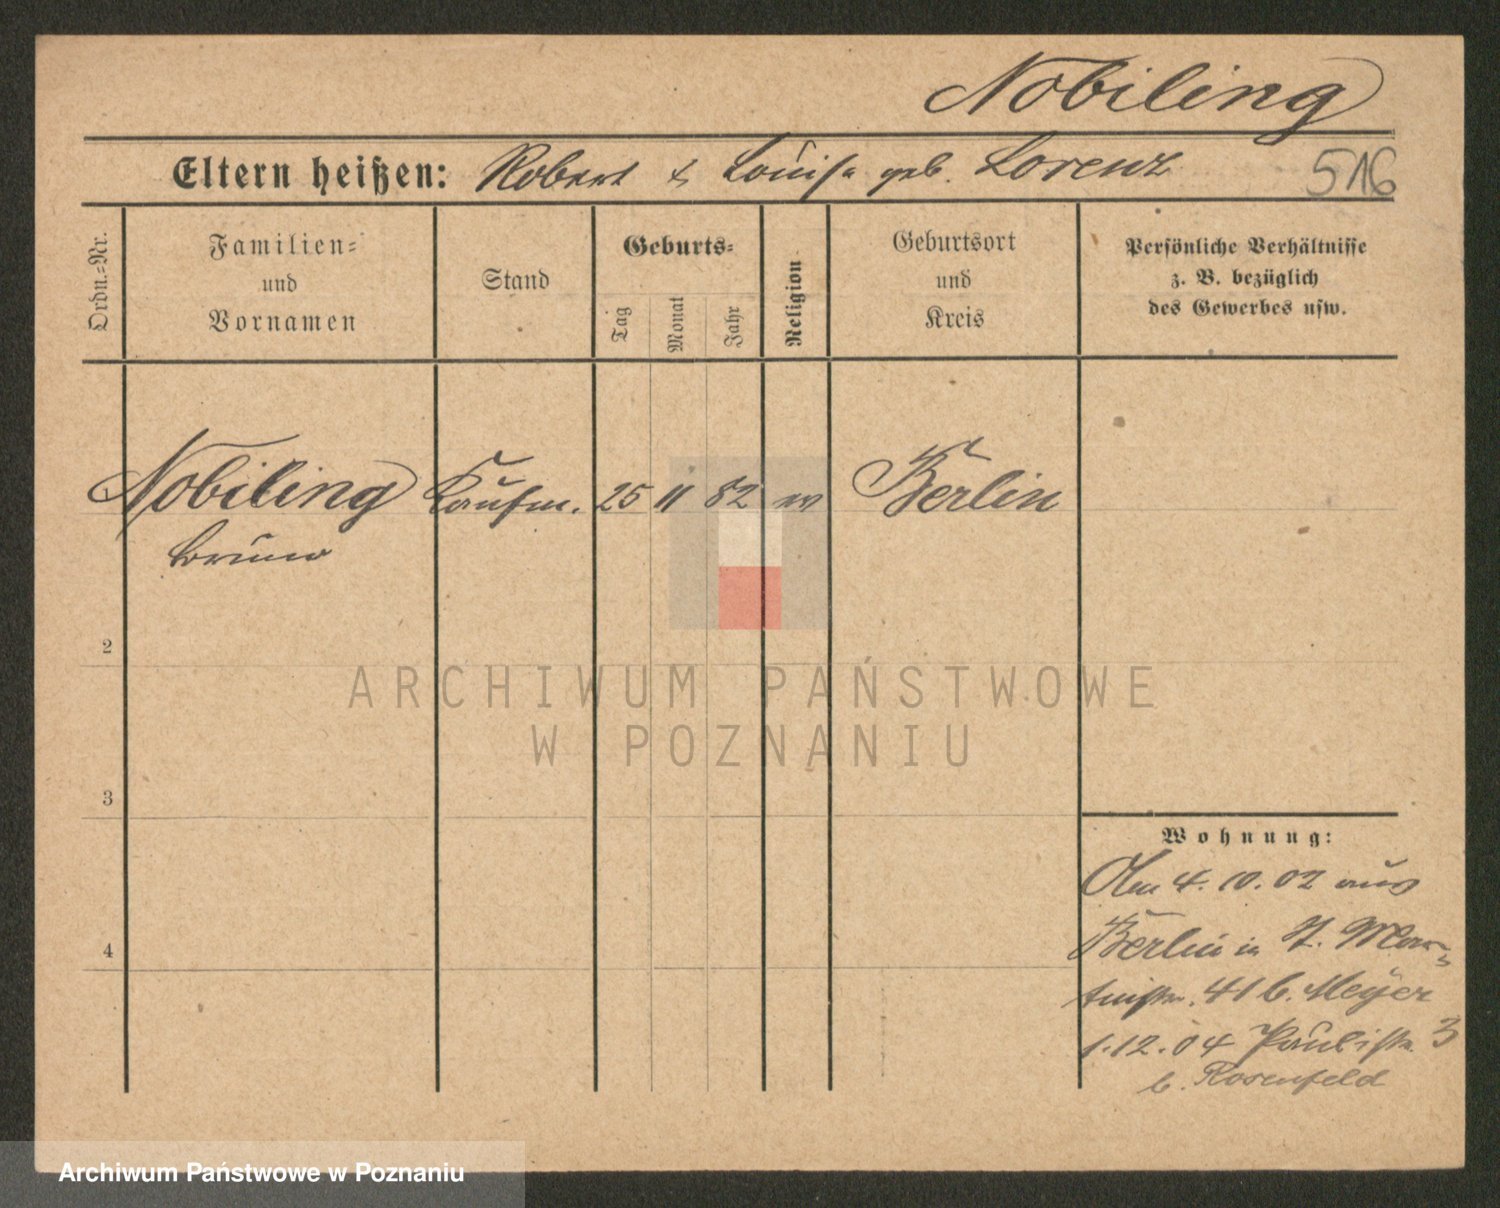 Nobiling
Eltern heißen: Robert & Louise geb. Lorenz
516
Ordn.-Nr.
Familien-
und
Vornamen
Stand
Geburts-
Tag
Monat
Jahr
Religion
Geburtsort
und
Kreis
Persönliche Verhältnisse
z. B. bezüglich
des Gewerbes usw.
Nobiling Kaufm. 25 11 82 ev Berlin
Bruno
2
ARCHIWUM PAŃSTWOWE
W POZNANIU
3
Wohnung:
Am 4. 10. 02 aus
Berlin in St. Mar-
tinstr. 41 b. Meyer
1.12.04 Paulistr. 3
b. Rosenfeld
4
Archiwum Państwowe w Poznaniu